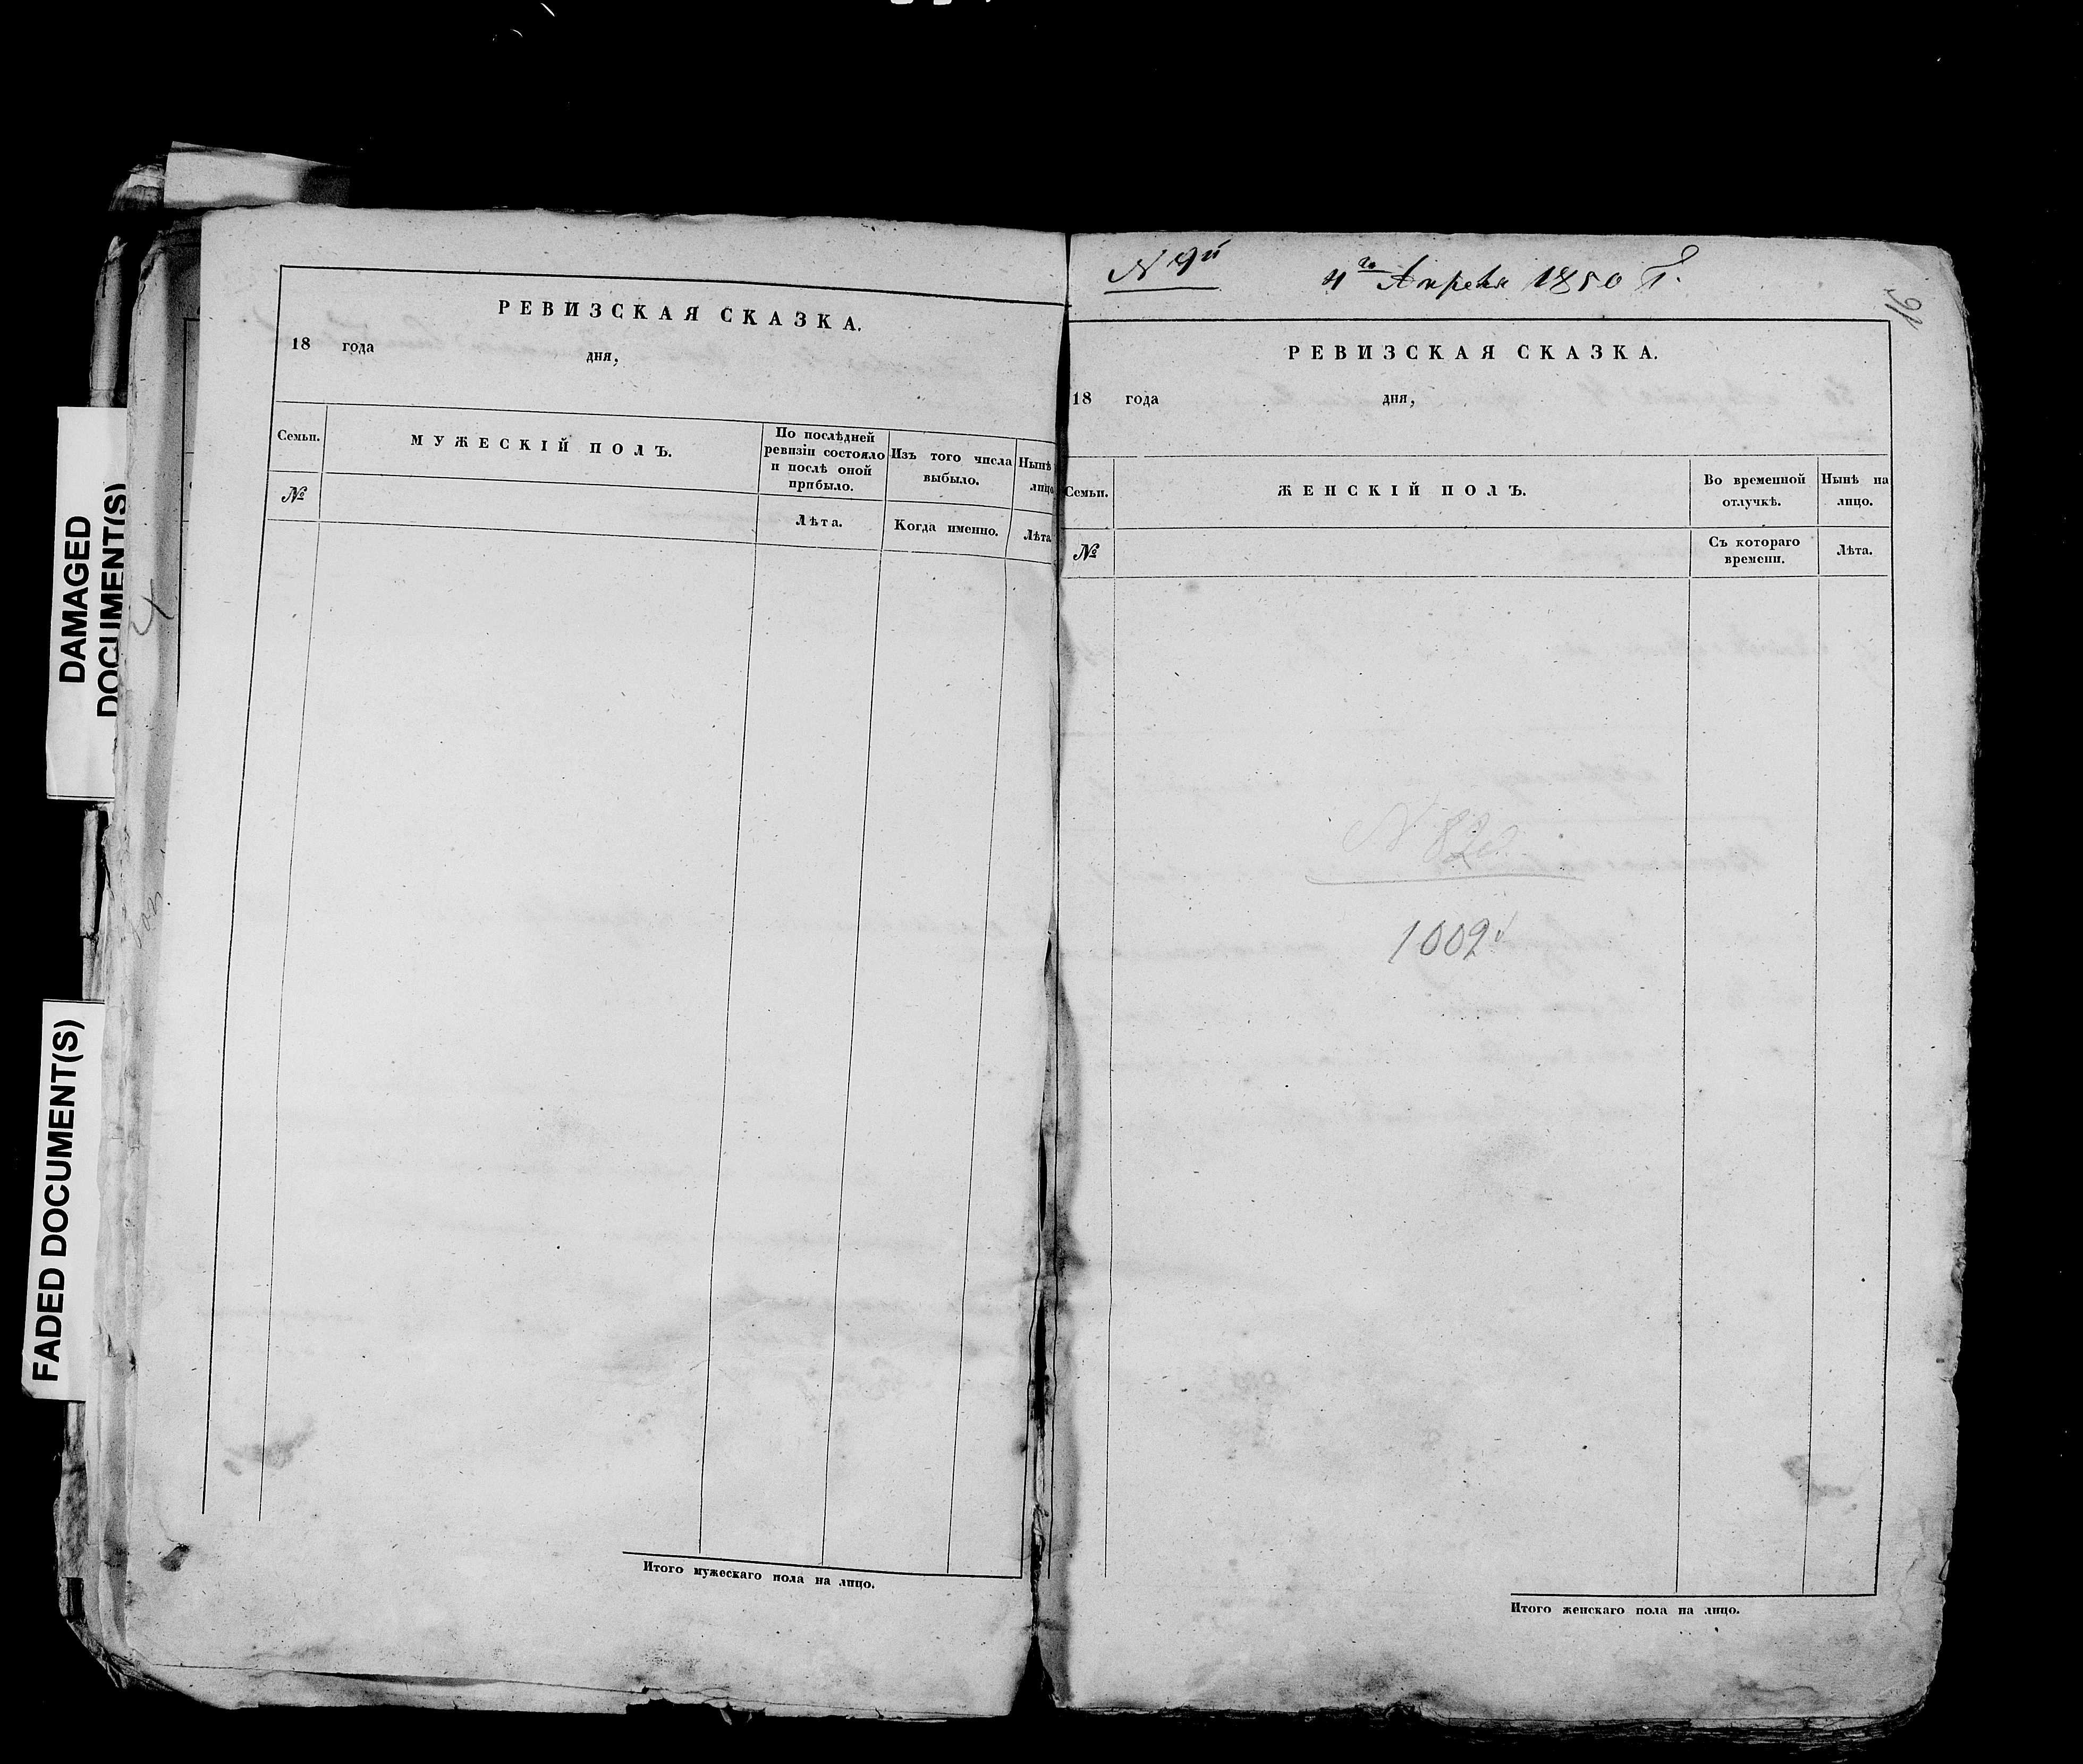 DAMAGED
DOCUMENT(S)
FADED DOCUMENT(S)
РЕВИЗСКАЯ СКАЗКА.
18 года дня,
Семьи. МУЖЕСКІЙ ПОЛЪ. По послѣдней ревизіи состояло и послѣ оной прибыло. Изъ того числа выбыло. Нынѣ лицо
№ Лѣта. Когда именно. Лѣта
Итого мужескаго пола на лицо.
N 9й 4го Апреля 1850 Г.
16
РЕВИЗСКАЯ СКАЗКА.
18 года дня,
Семьи. ЖЕНСКІЙ ПОЛЪ. Во временной отлучкѣ. Нынѣ на лицо.
№ Съ котораго времени. Лѣта.
1002
Итого женскаго пола на лицо.